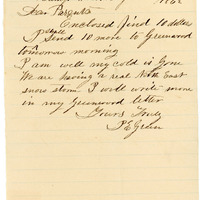 Dear Parents
Enclosed find 10 dollars
I shall
Send 10 more to Greenwood
tomorrow morning
I am well my cold is gone
We are having a real North East
snow storm I will write more
in my Greenwood letter
Yours Truly
P E Green